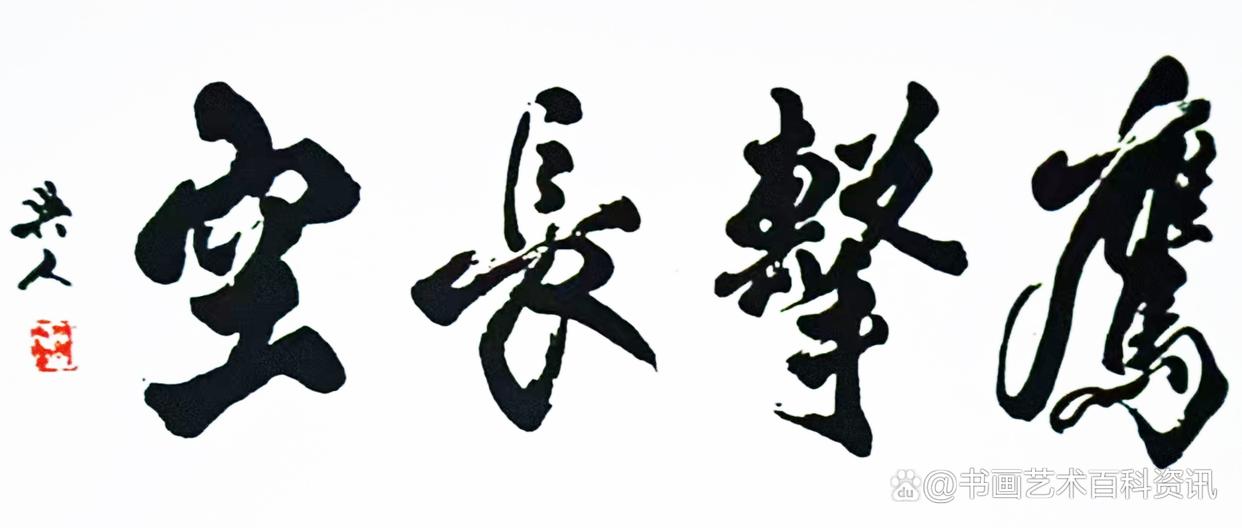 鷹擊長空
樊人
du @书画艺术百科资讯